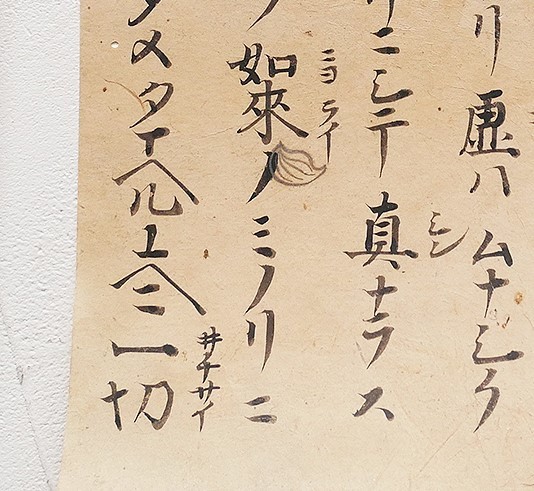 リ虚ハムナシク
シン
リニシテ真ナラス
ニヨライ
ノ如來ノミノリニ
タメタテマツル上ヘニ一切
ヰチサイ